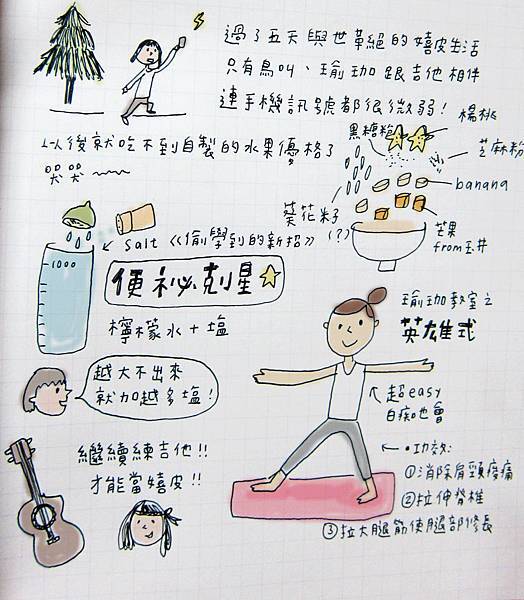 過了五天與世革絕的嬉皮生活
只有鳥叫、瑜珈跟吉他相伴
連手機訊號都很微弱!
以後就吃不到自製的水果優格了
哭哭~~~
黑糖粉
楊桃
芝麻粉
banana
葵花籽
(?)
芒果
from玉井
salt 《偷學到的新招》
1000
便祕剋星
檸檬水+塩
越大不出來
就加越多塩!
瑜珈教室之
英雄式
超easy
白痴也會
繼續練吉他!!
才能當嬉皮!!
•功效:
①消除肩頸痠痛
②拉伸脊椎
③拉大腿筋使腿部修長